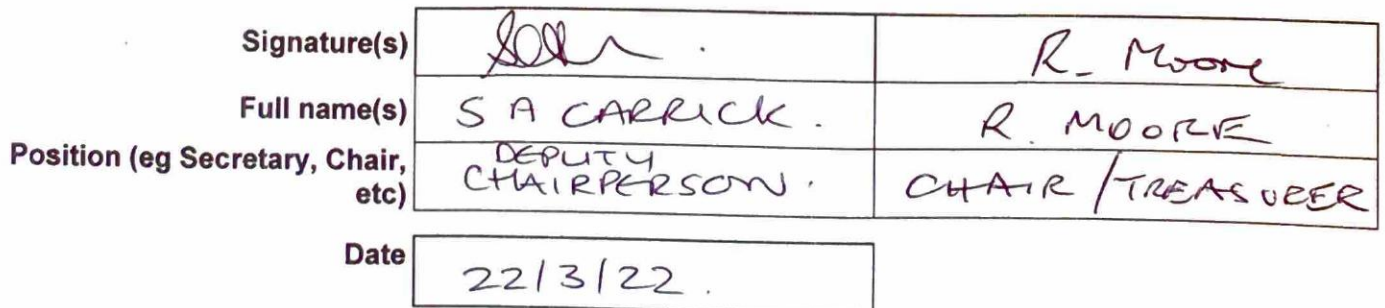 Signature(s) R. Moore
Full name(s) S A CARRICK. R. MOORE
Position (eg Secretary, Chair, etc) DEPUTY CHAIRPERSON. CHAIR / TREASURER
Date 22/3/22.